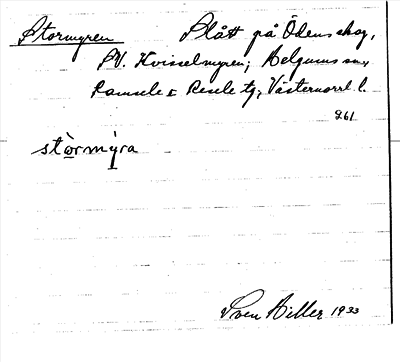 Stormyren Slått på Ödens skog,
SV. Hvisselmyren; Helgums sn,
Ramsele & Resele tg; Västernorrl. l.
261
stòrmýra
Sven Hiller 1933